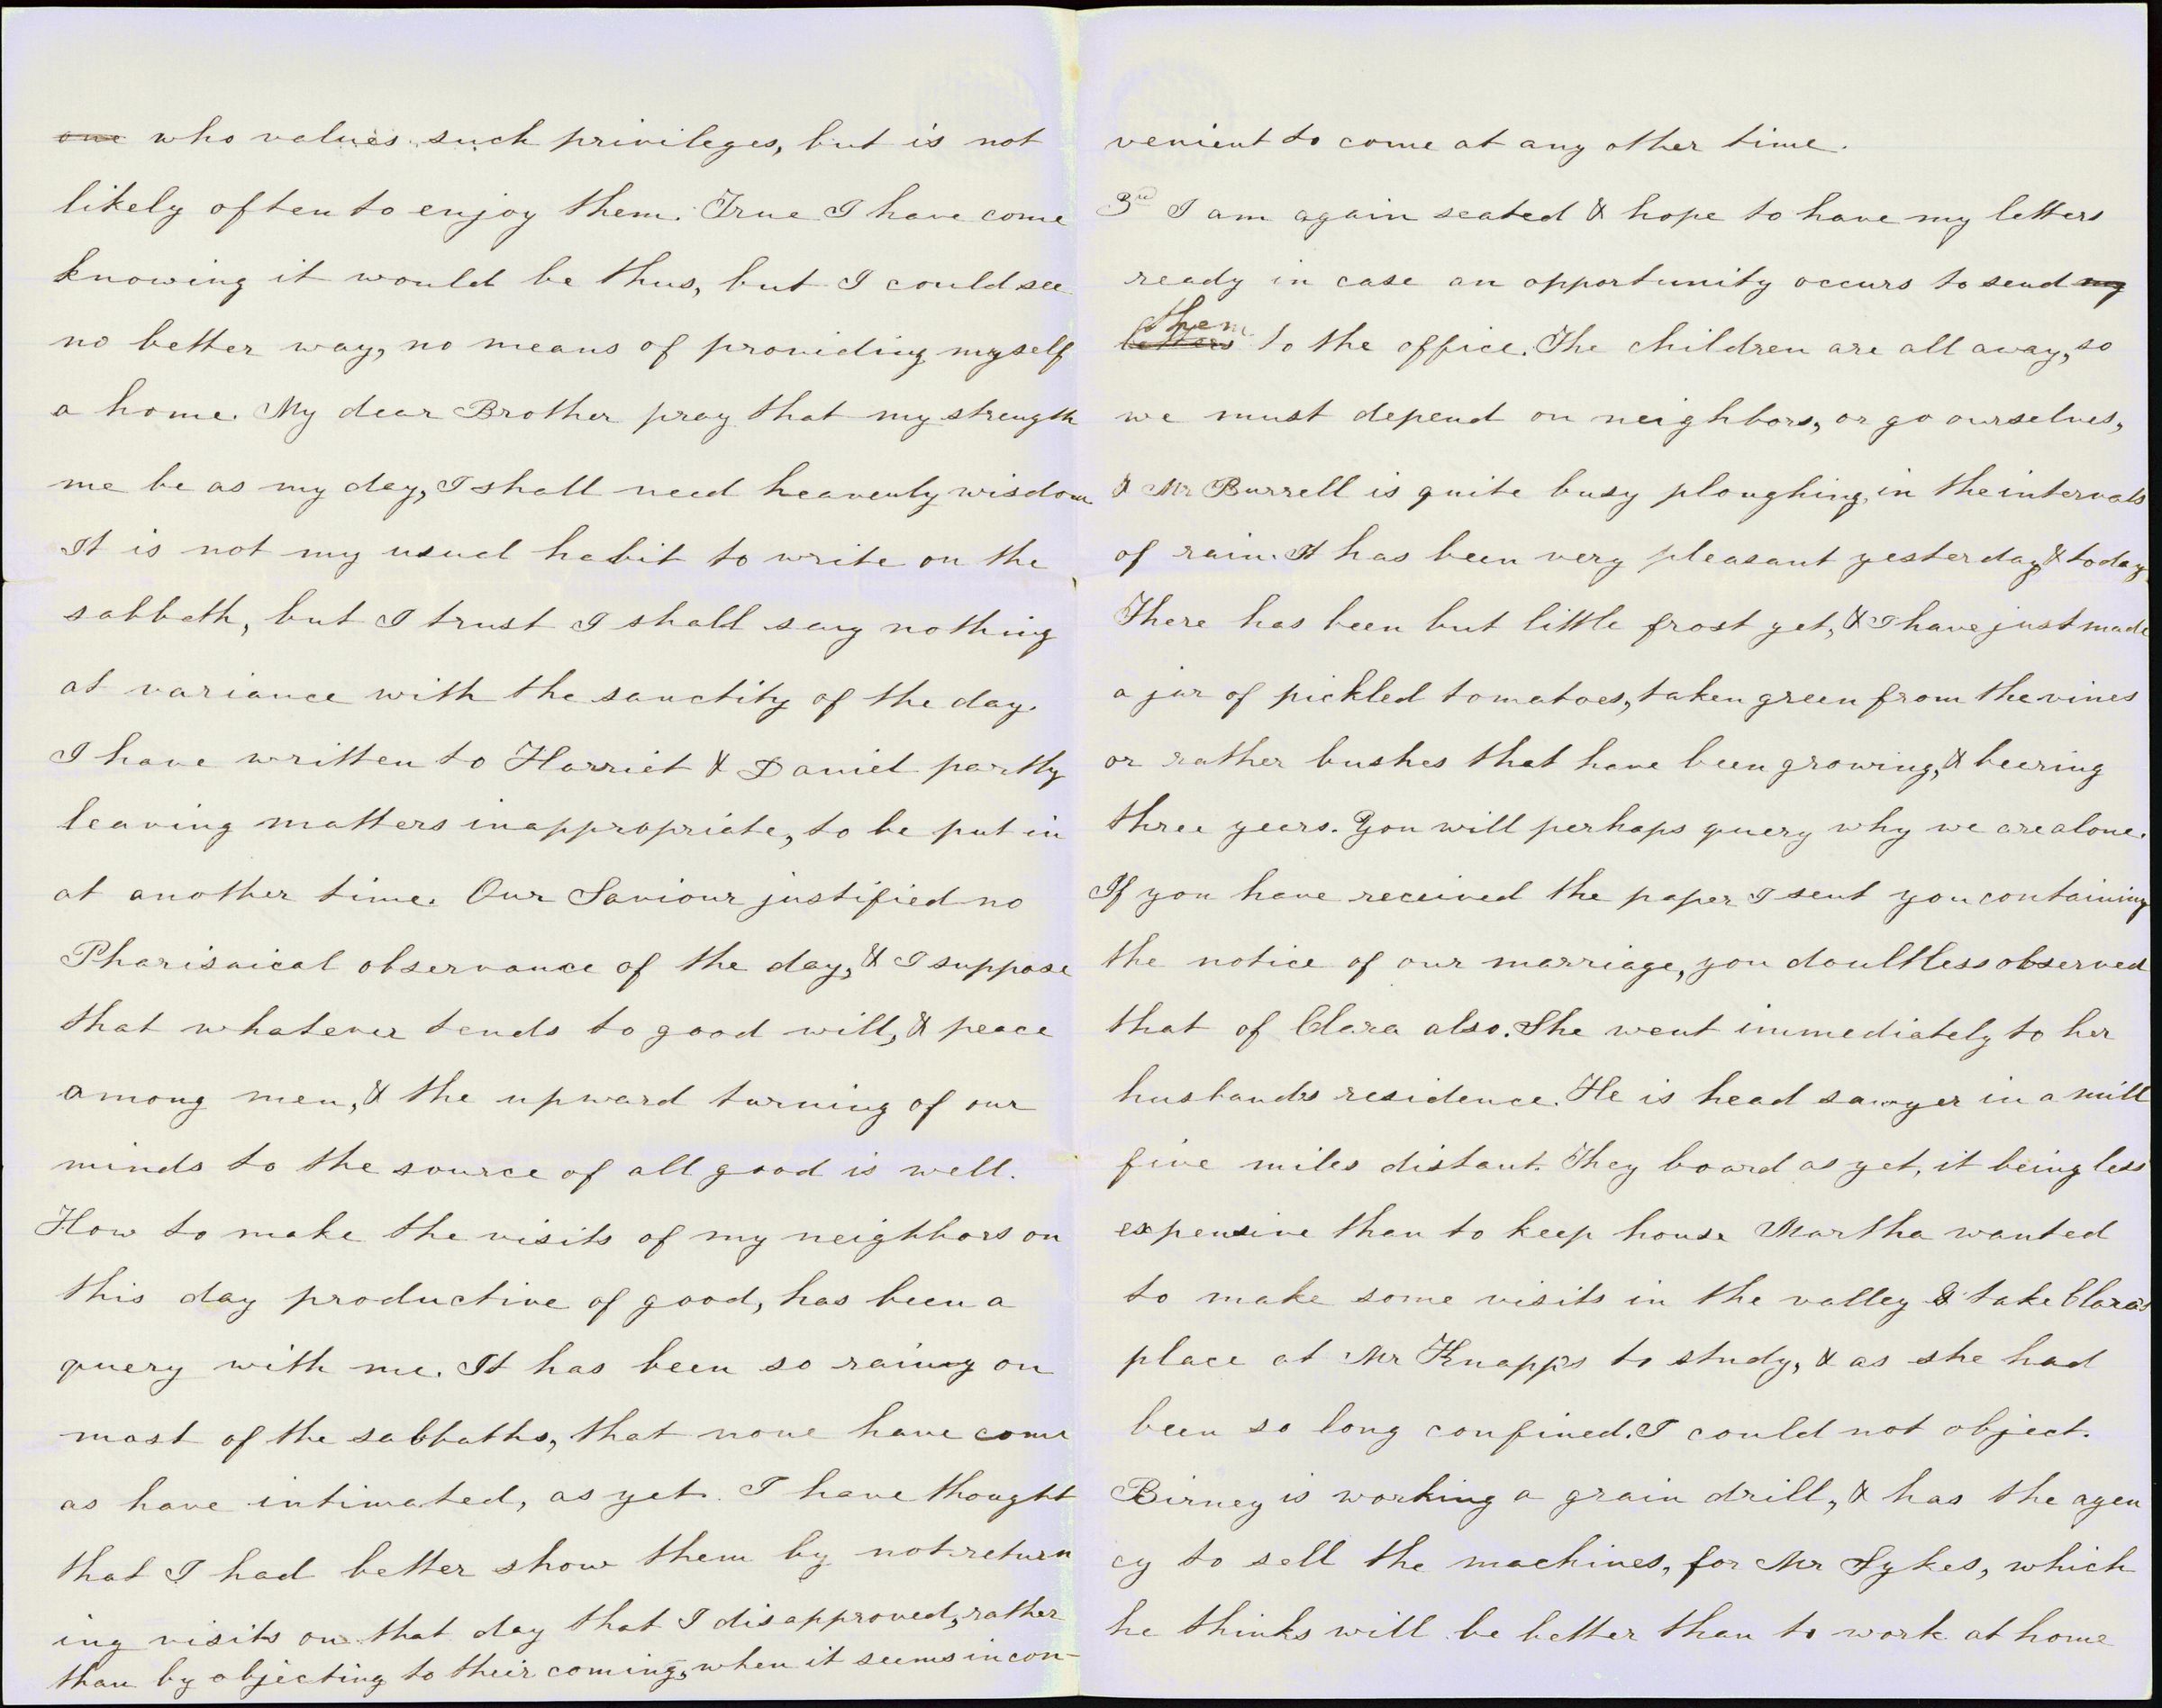 one who values such privileges, but is not
likely often to enjoy them. True I have come
knowing it would be thus, but I could see
no better way, no means of providing myself
a home. My dear Brother pray that my strength
me be as my day, I shall need heavenly wisdom
It is not my usual habit to write on the
sabbath, but I trust I shall say nothing
at variance with the sanctity of the day.
I have written to Harriet & Daniel partly
leaving matters inappropriate, to be put in
at another time. Our Saviour justified no
Pharisaical observance of the day, & I suppose
that whatever tends to good will, & peace
among men, & the upward turning of our
minds to the source of all good is well.
How to make the visits of my neighbors on
this day productive of good, has been a
query with me. It has been so rainy on
most of the sabbaths, that none have come
as have intimated, as yet. I have thought
that I had better show them by not return
ing visits on that day that I disapproved, rather
than by objecting to their coming, when it seems incon-
venient to come at any other time.
3rd I am again seated & hope to have my letters
ready in case an opportunity occurs to send my
letters them to the office. The children are all away, so
we must depend on neighbors, or go ourselves,
& Mr Burrell is quite busy ploughing, in the intervals
of rain. It has been very pleasant yesterday & today.
There has been but little frost yet, & I have just made
a jar of pickled tomatoes, taken green from the vines
or rather bushes that have been growing, & bearing
three years. You will perhaps query why we are alone.
If you have received the paper I sent you containing
the notice of our marriage, you doubtless observed
that of Clara also. She went immediately to her
husbands residence. He is head sawyer in a mill
five miles distant. They board as yet, it being less
expensive than to keep house Martha wanted
to make some visits in the valley & take Clara's
place at Mr Knapp's to study, & as she had
been so long confined. I could not object.
Birney is working a grain drill, & has the agen
cy to sell the machines, for Mr Sykes, which
he thinks will be better than to work at home